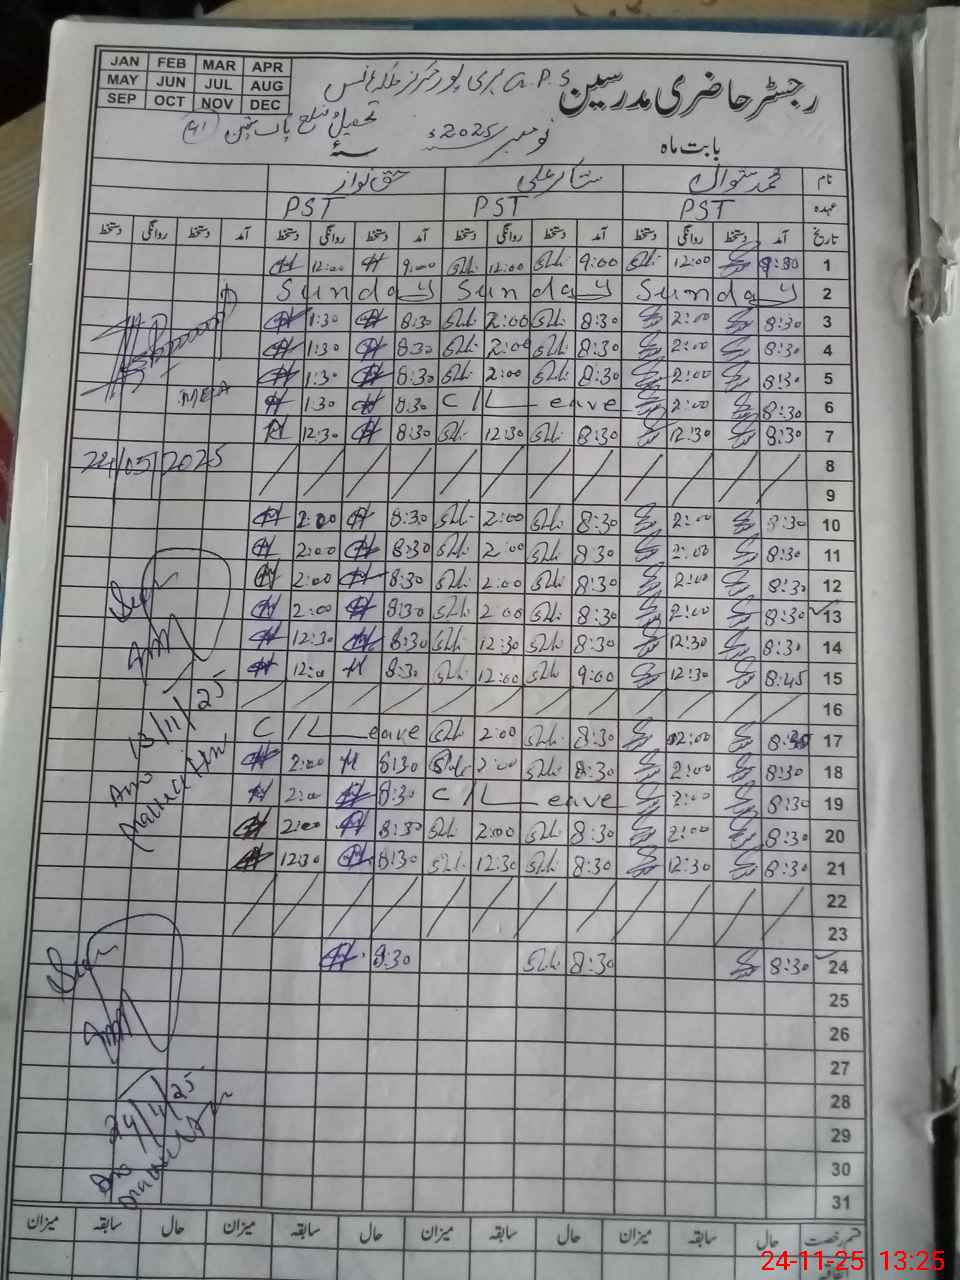 JAN FEB MAR APR
MAY JUN JUL AUG
SEP OCT NOV DEC
رجسٹر حاضری مدرسین G.P.S
بابت ماہ نومبر 2025ء
نام محمد ستار علی حق نواز
عہدہ PST PST PST
تاریخ آمد دستخط روانگی دستخط آمد دستخط روانگی دستخط آمد دستخط روانگی دستخط آمد دستخط روانگی دستخط
1 9:30 12:00 9:00 12:00 9:00 12:00
2 Sunday Sunday Sunday
3 8:30 2:00 8:30 2:00 8:30 1:30
4 8:30 2:00 8:30 2:00 8:30 1:30
5 8:30 2:00 8:30 2:00 8:30 1:30
MEA
6 8:30 2:00 C/Leave 8:30 1:30
7 8:30 12:30 8:30 12:30 8:30 12:30
8
24/05/2025
9
10 8:30 2:00 8:30 2:00 8:30 2:00
11 8:30 2:00 8:30 2:00 8:30 2:00
12 8:30 2:00 8:30 2:00 8:30 2:00
13 8:30 2:00 8:30 2:00 8:30 2:00
14 8:30 12:30 8:30 12:30 8:30 12:30
15 8:45 12:30 9:00 12:00 8:30 12:00
16
17 8:30 2:00 8:30 2:00 C/Leave
18 8:30 2:00 8:30 2:00 8:30 2:00
19 8:30 2:00 C/Leave 8:30 2:00
20 8:30 2:00 8:30 2:00 8:30 2:00
21 8:30 12:30 8:30 12:30 8:30 12:30
Seen
13/11/25
22
23
24 8:30 8:30 8:30
25
26
27
28
29
30
31
Seen
قسم رخصت حال سابقہ میزان حال سابقہ میزان حال سابقہ میزان حال سابقہ میزان
24-11-25 13:25